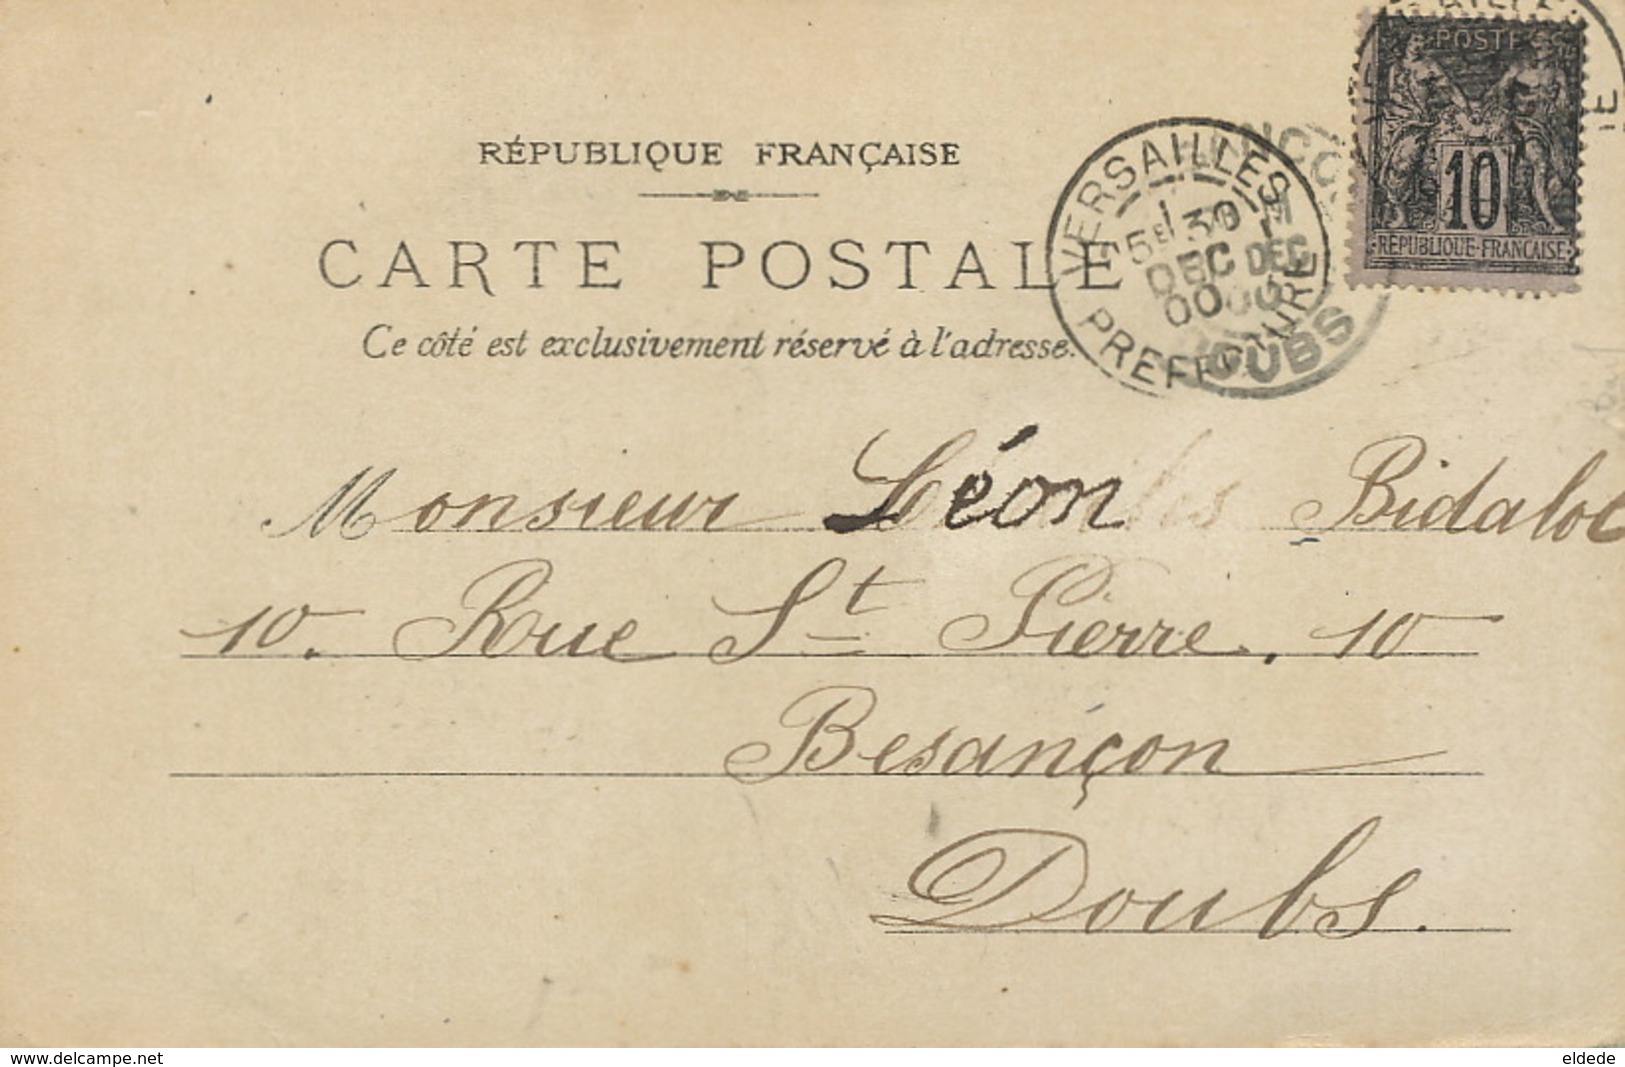 POSTES
10
RÉPUBLIQUE FRANÇAISE
RÉPUBLIQUE FRANÇAISE
CARTE POSTALE
Ce côté est exclusivement réservé à l'adresse.
VERSAILLES
5E 30
DEC DEC
00
PREFECTURE
DOUBS
Monsieur Léon Bidalot
10. Rue St Pierre. 10
Besançon
Doubs.
www.delcampe.net
eldede